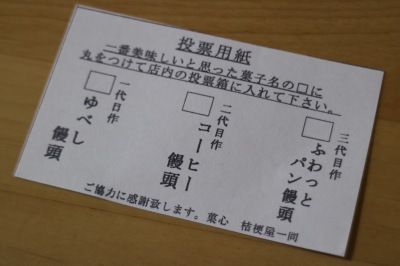 投票用紙
一番美味しいと思った菓子名の□に
丸をつけて店内の投票箱に入れて下さい。
三代目作
ふわっと
パン饅頭
二代目作
コーヒー
饅頭
一代目作
ゆべし
饅頭
ご協力に感謝致します。菓心 桔梗屋一同